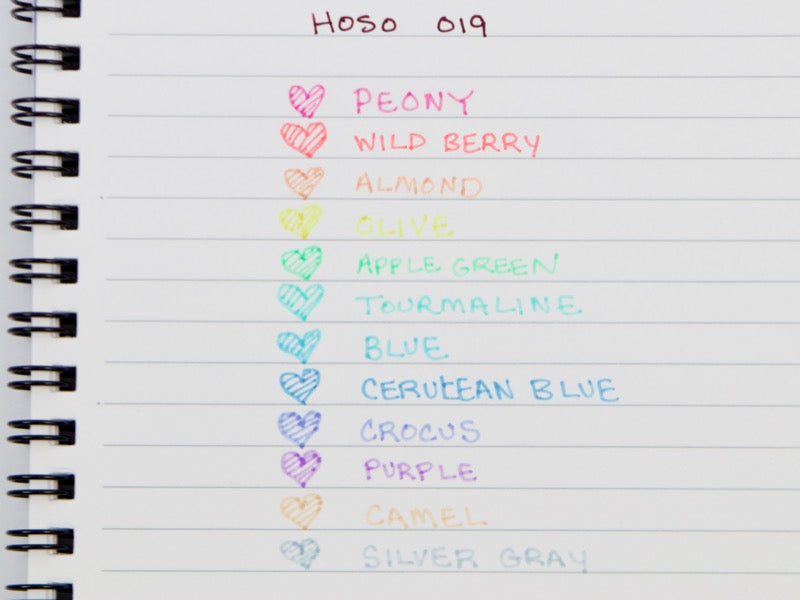 HOSO 019
PEONY
WILD BERRY
ALMOND
OLIVE
APPLE GREEN
TOURMALINE
BLUE
CERULEAN BLUE
CROCUS
PURPLE
CAMEL
SILVER GRAY